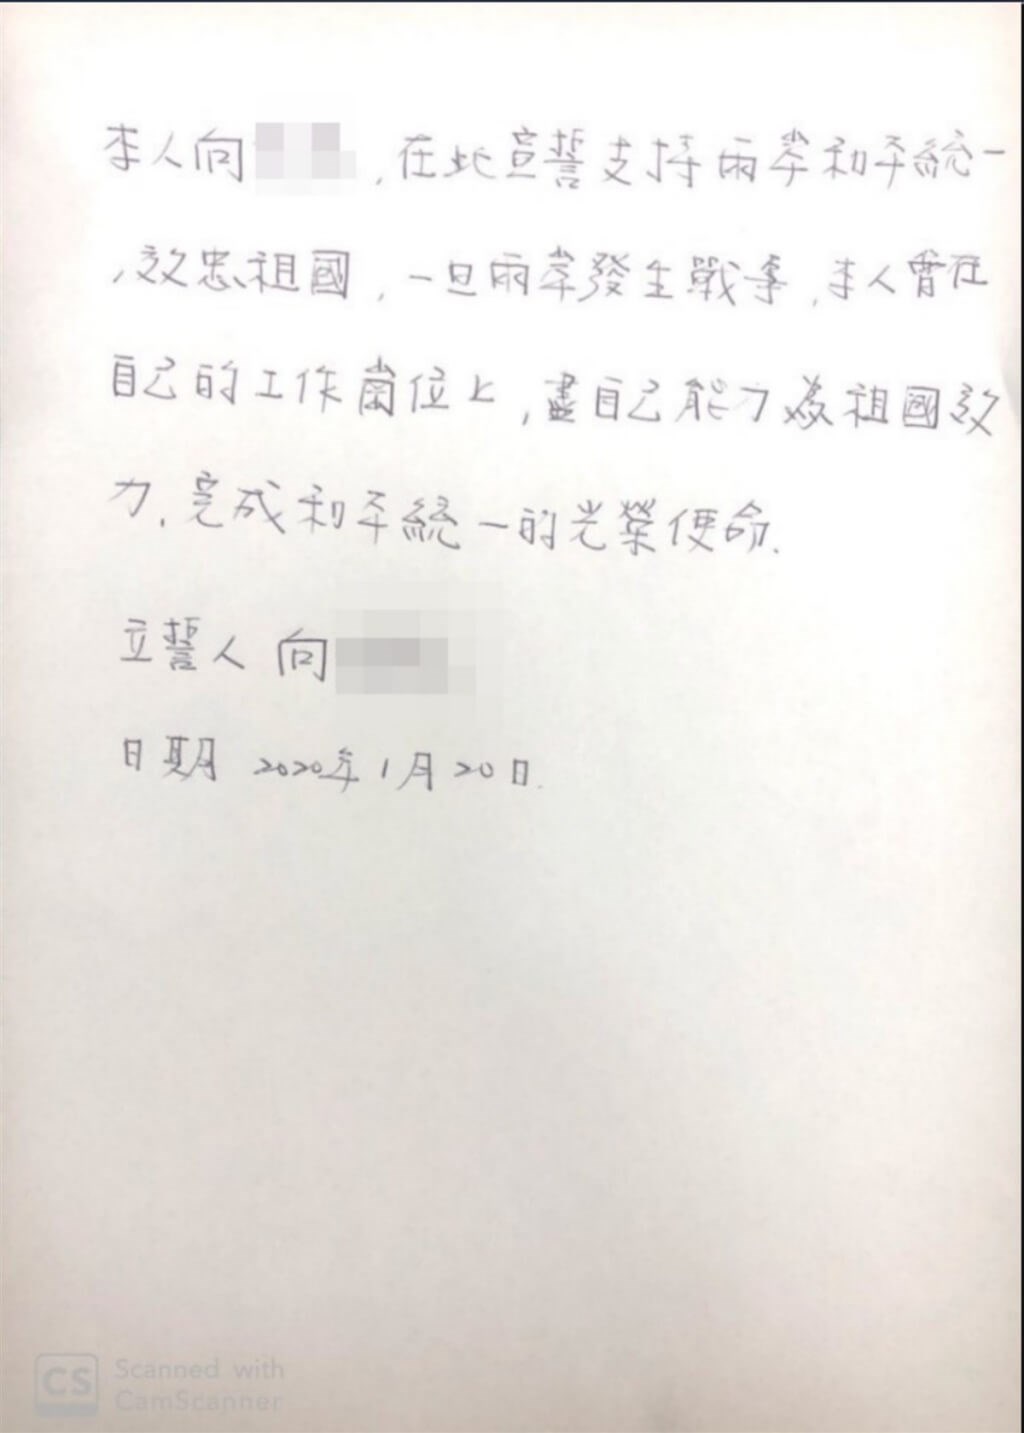 本人向 ,在此宣誓支持兩岸和平統一
,效忠祖國,一旦兩岸發生戰爭,本人會在
自己的工作崗位上,盡自己能力為祖國效
力.完成和平統一的光榮使命.
立誓人 向
日期 2020年1月20日.
CS Scanned with
CamScanner